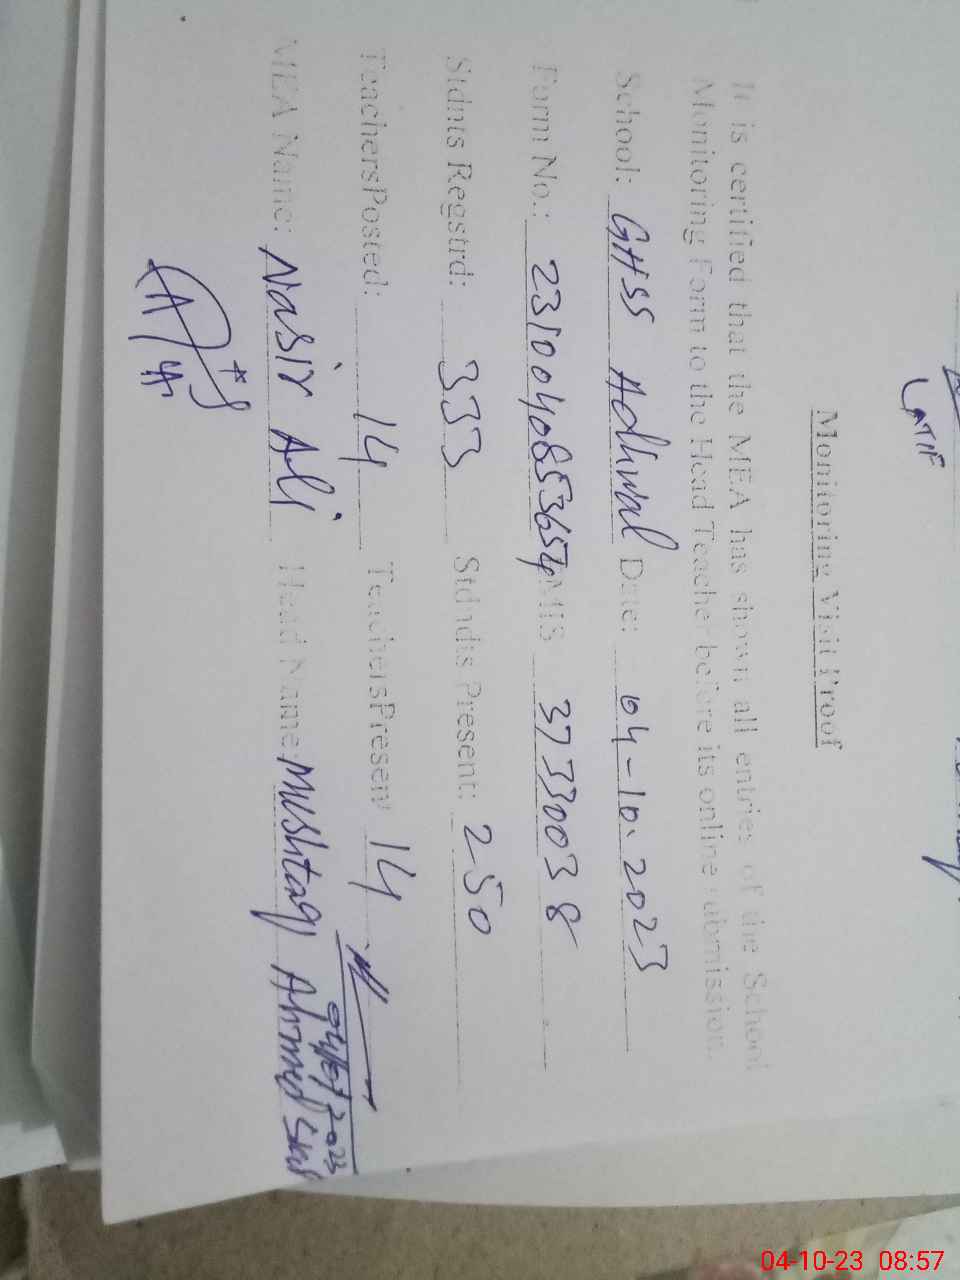 LATIF
Monitoring Visit Proof
It is certified that the MEA has shown all entries of the School
Monitoring Form to the Head Teacher before its online submission.
School: GHSS Adhwal Date: 04-10.2023
Form No.: 231004085365 MIS 37330038
Stdnts Regstrd: 333 Stdnds Present: 250
TeachersPosted: 14 TeachersPresent 14
04/10/2023
MEA Name: Nasir Ali Head Name: Mushtaq Ahmed
04-10-23 08:57